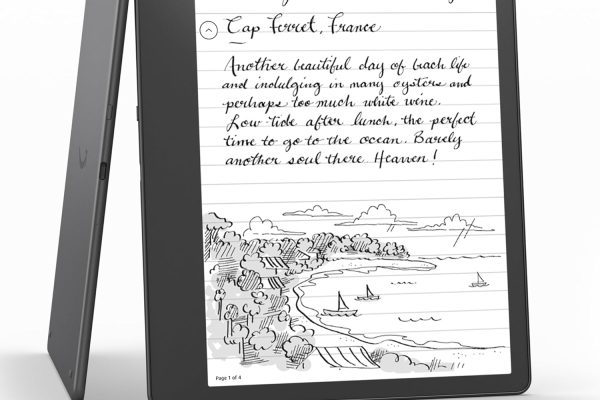 Cap Ferret, France
Another beautiful day of beach life
and indulging in many oysters and
perhaps too much white wine.
Low tide after lunch, the perfect
time to go to the ocean. Barely
another soul there. Heaven!
Page 1 of 4